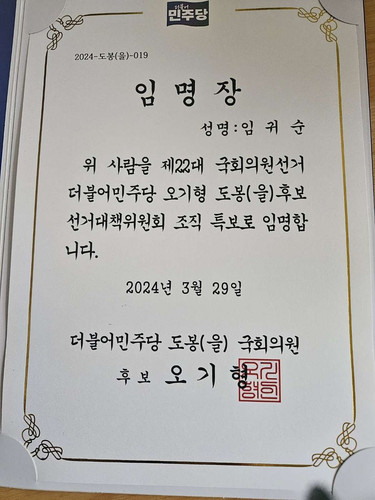 더불어
민주당
2024-도봉(을)-019
임명장
성명:임귀순
위 사람을 제22대 국회의원선거
더불어민주당 오기형 도봉(을)후보
선거대책위원회 조직 특보로 임명합
니다.
2024년 3월 29일
더불어민주당 도봉(을) 국회의원
후보 오기형